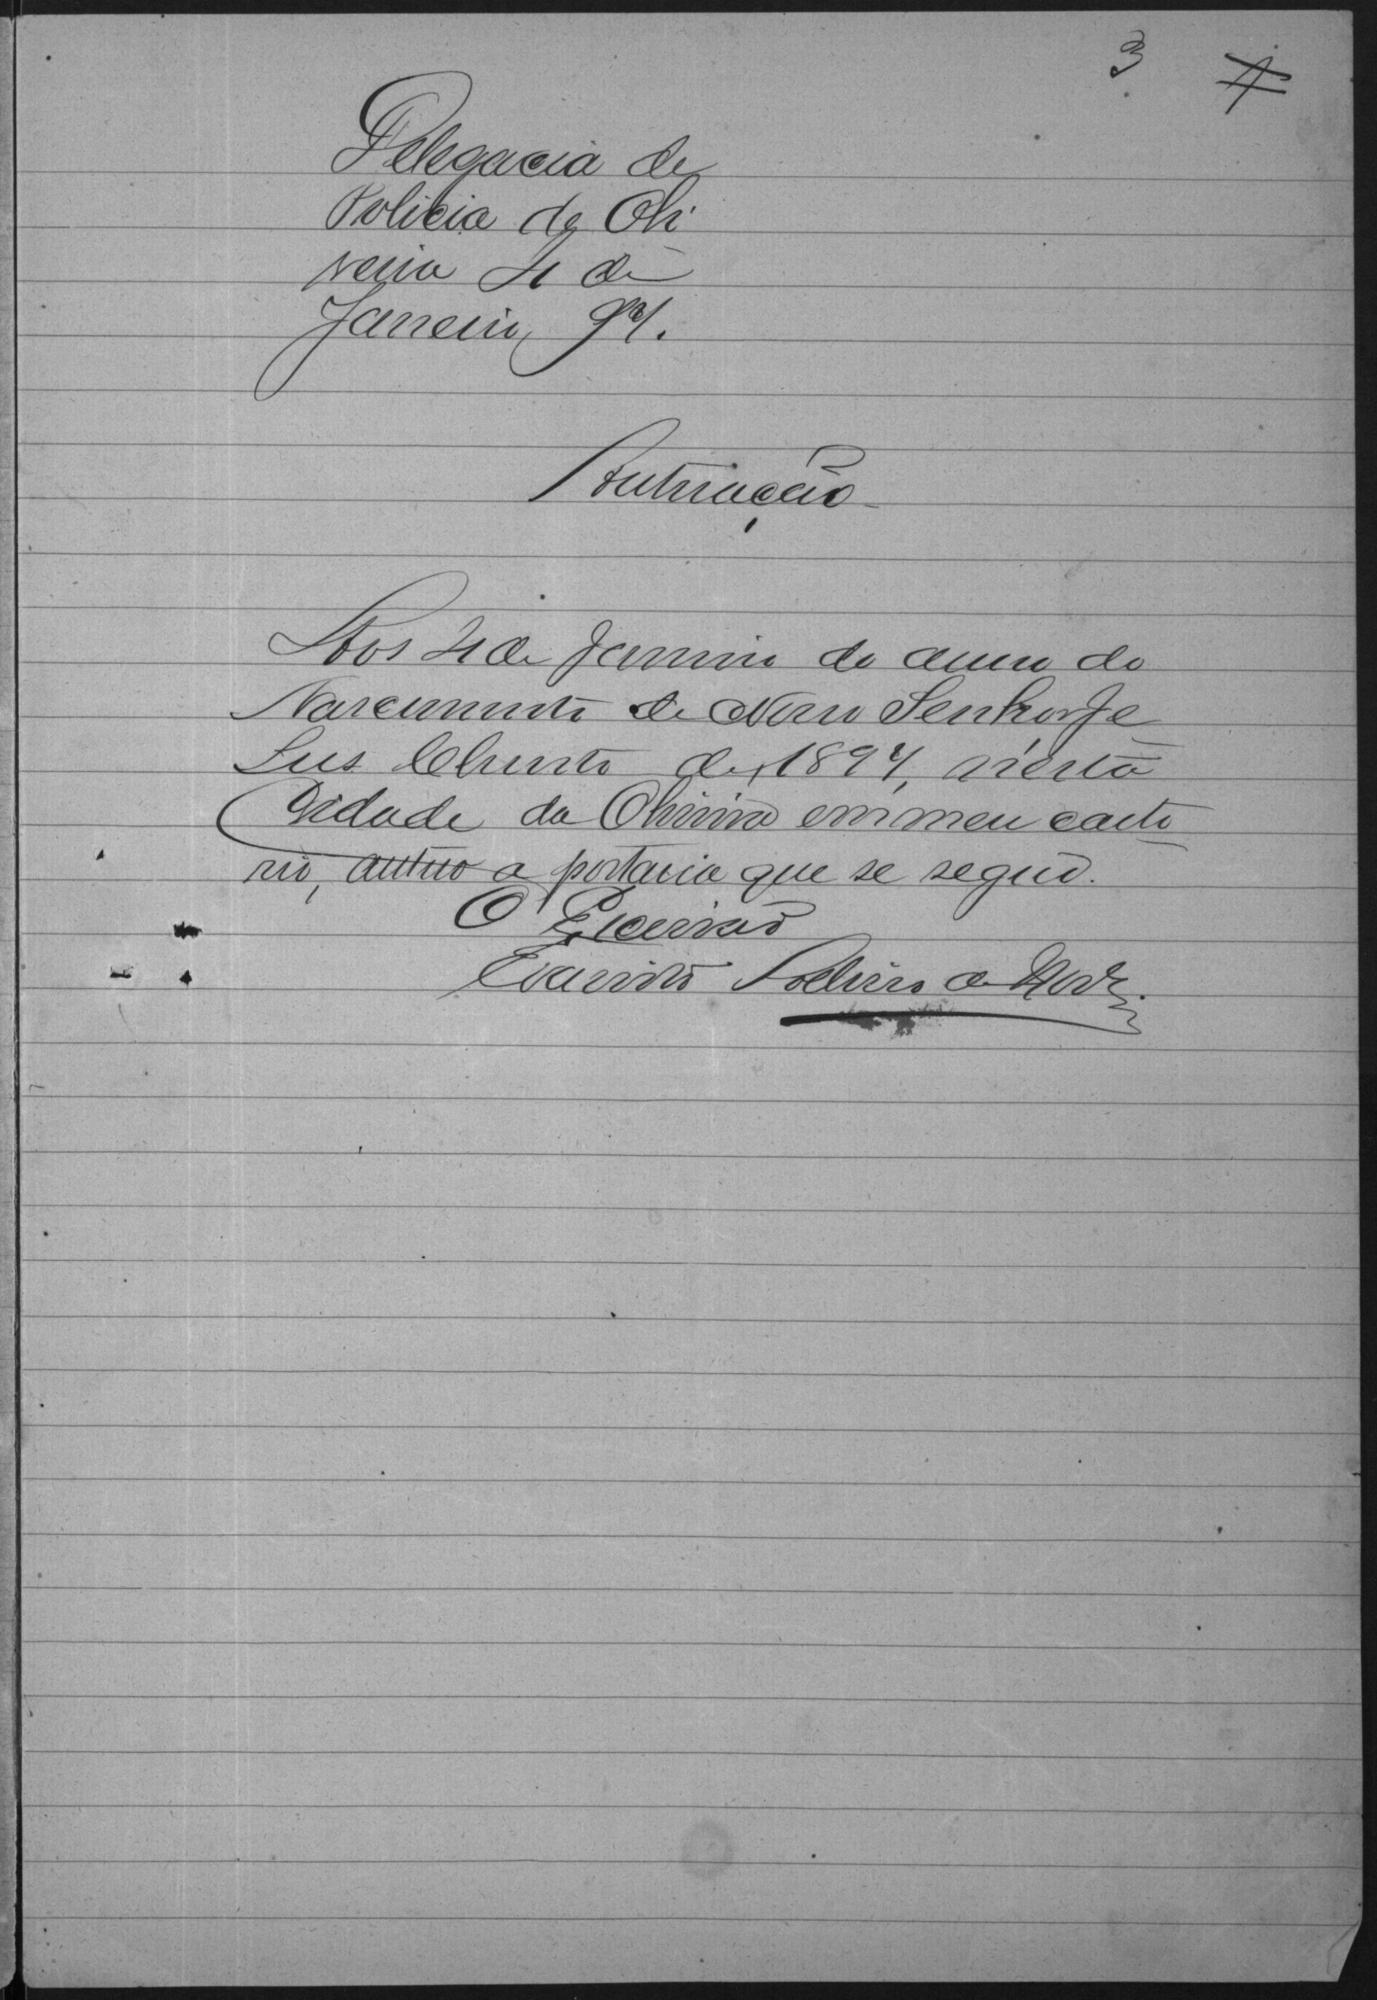 3
Delegacia de
Policia de Oli
veira 4 de
Janeiro, 94.
Autuação
Aos 4 de Janeiro do anno do
Nascimento de Nosso Senhor Je
sus Christo de 1894, n'esta
Cidade da Oliveira em meu carto
rio, autuo a portaria que se segue.
O Escrivão
Evaristo de